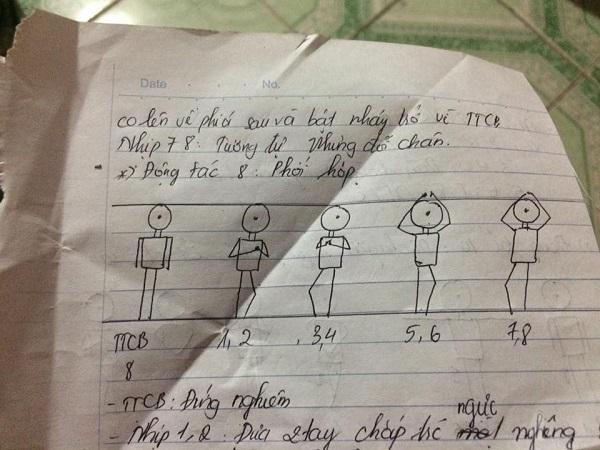 Date No.
co lên về phía sau và bật nhảy trở về TTCB
Nhịp 7 8: Tương tự nhưng đổi chân.
*) Động tác 8: Phối hợp
TTCB 1, 2 , 3,4 5, 6 7,8
8
- TTCB: Đứng nghiêm
ngực
- Nhịp 1, 2: Đưa 2 tay chắp trc nghêng